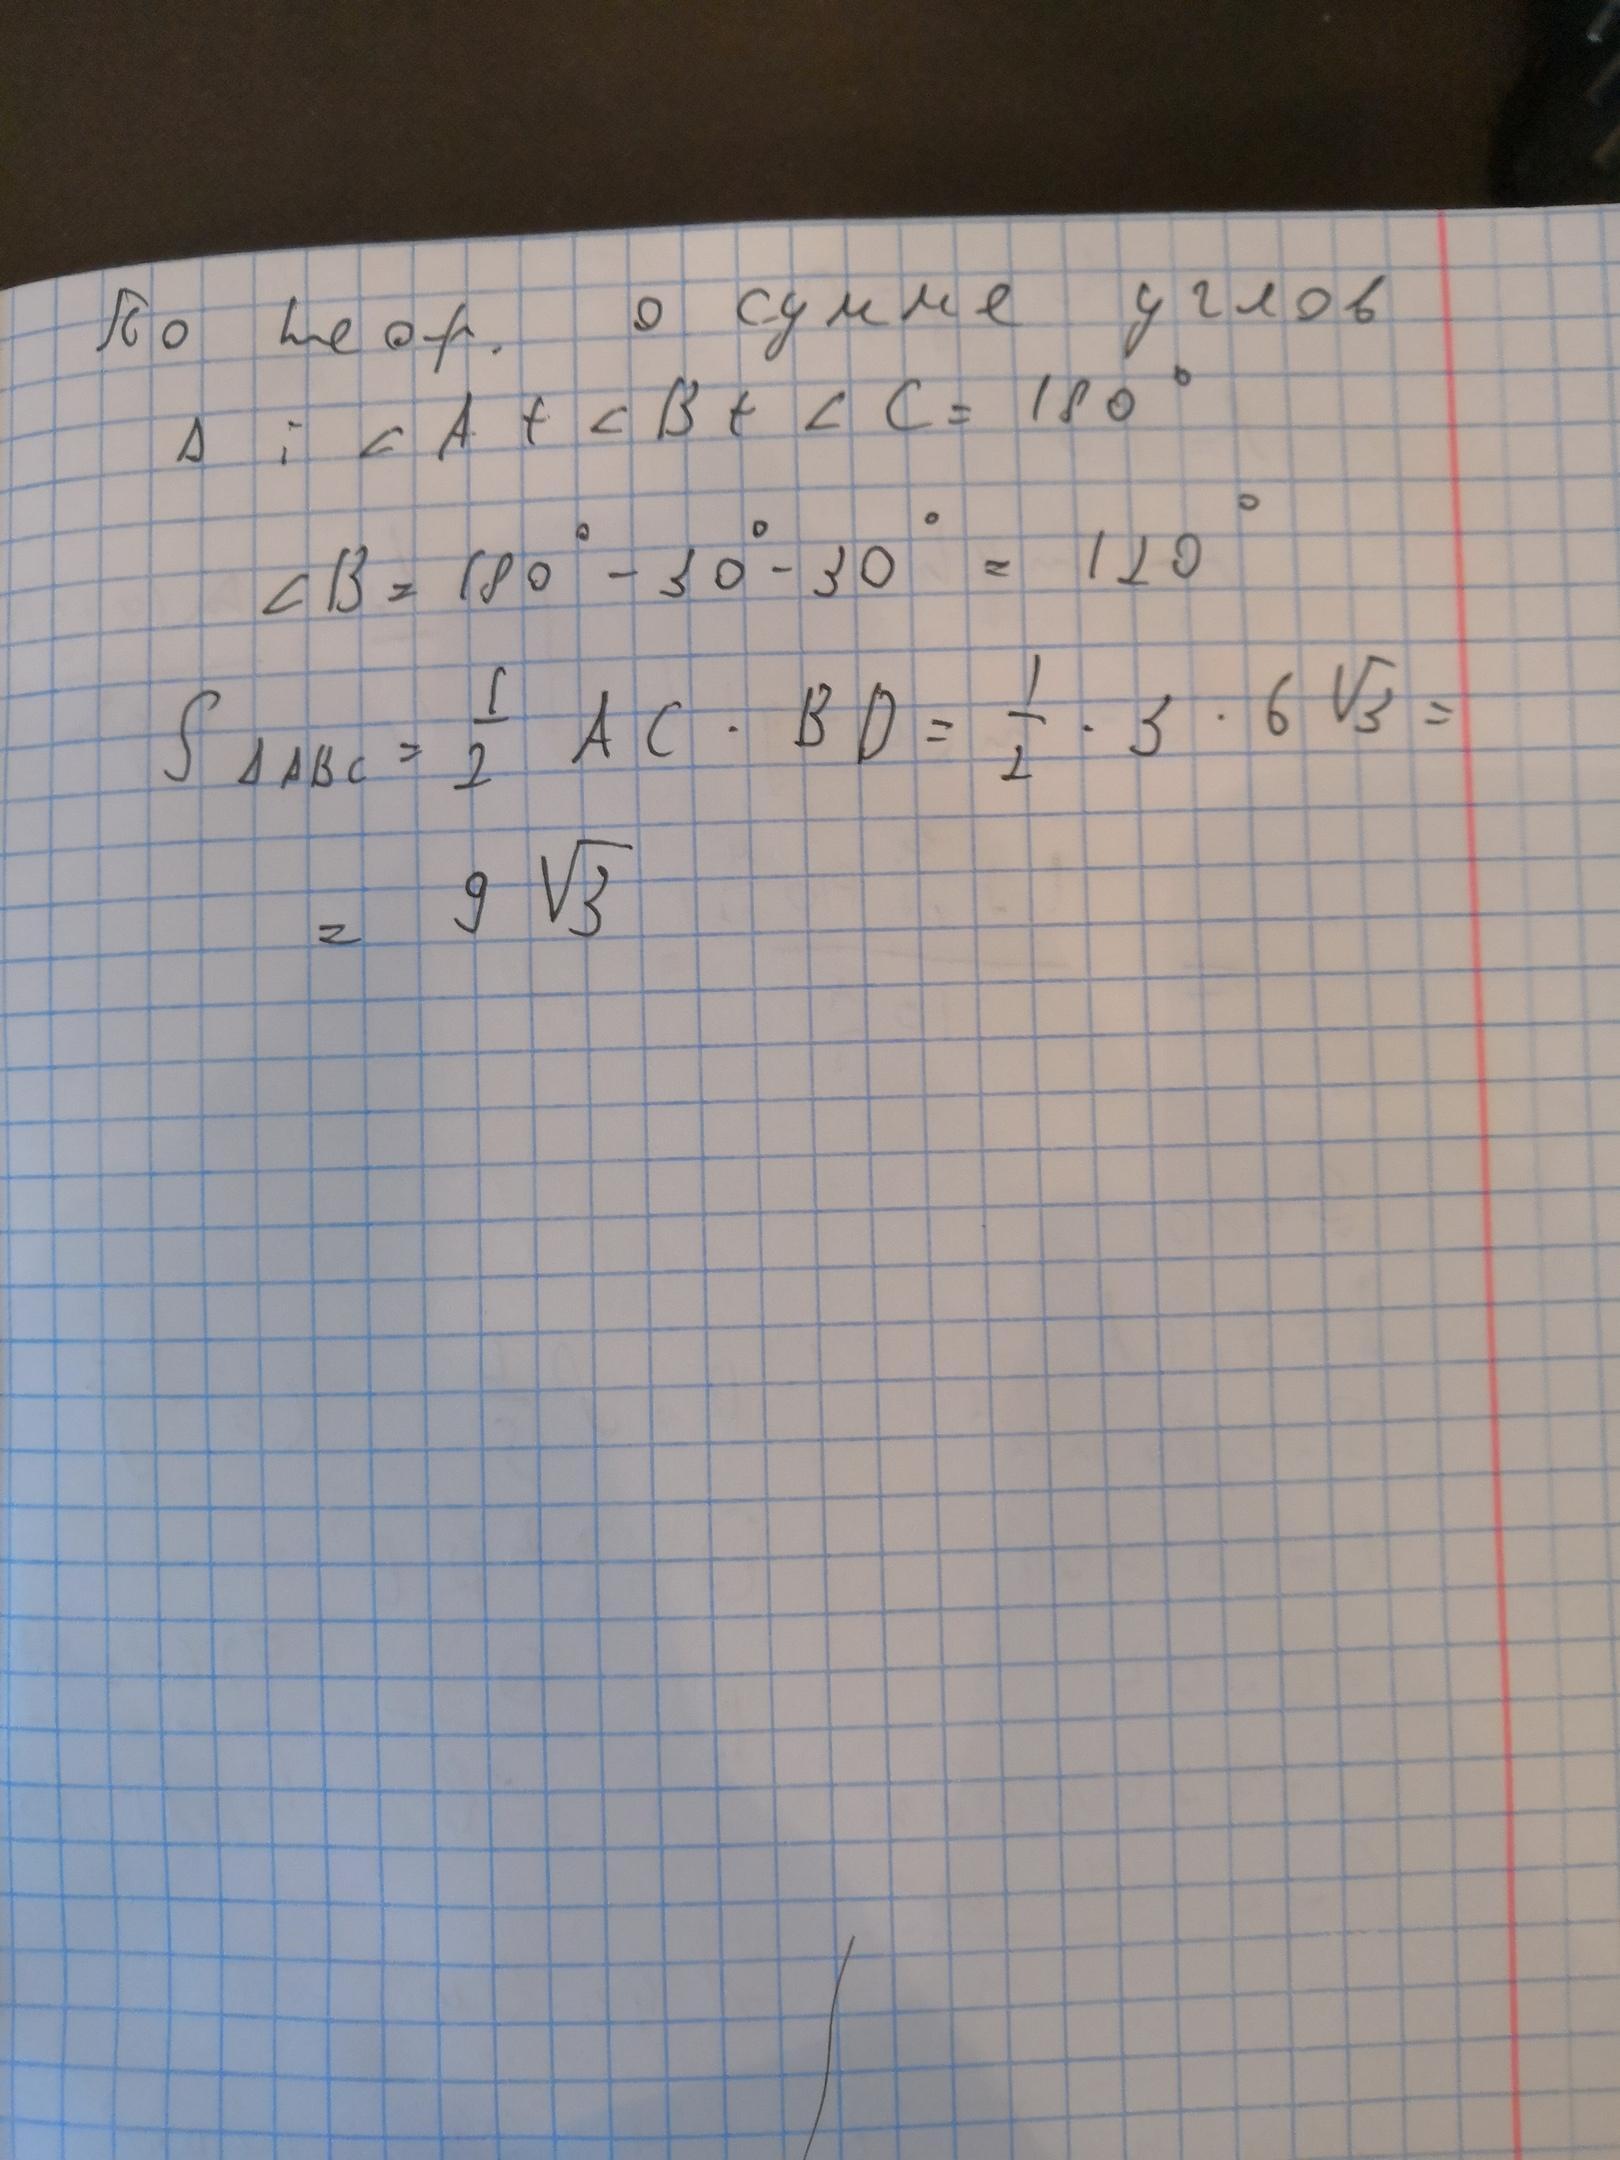 По теор. о сумме углов
Δ : ∠A + ∠B + ∠C = 180°
∠B = 180° - 30° - 30° = 120°
S ΔABC = 1/2 AC · BD = 1/2 · 3 · 6 √3 =
= 9 √3